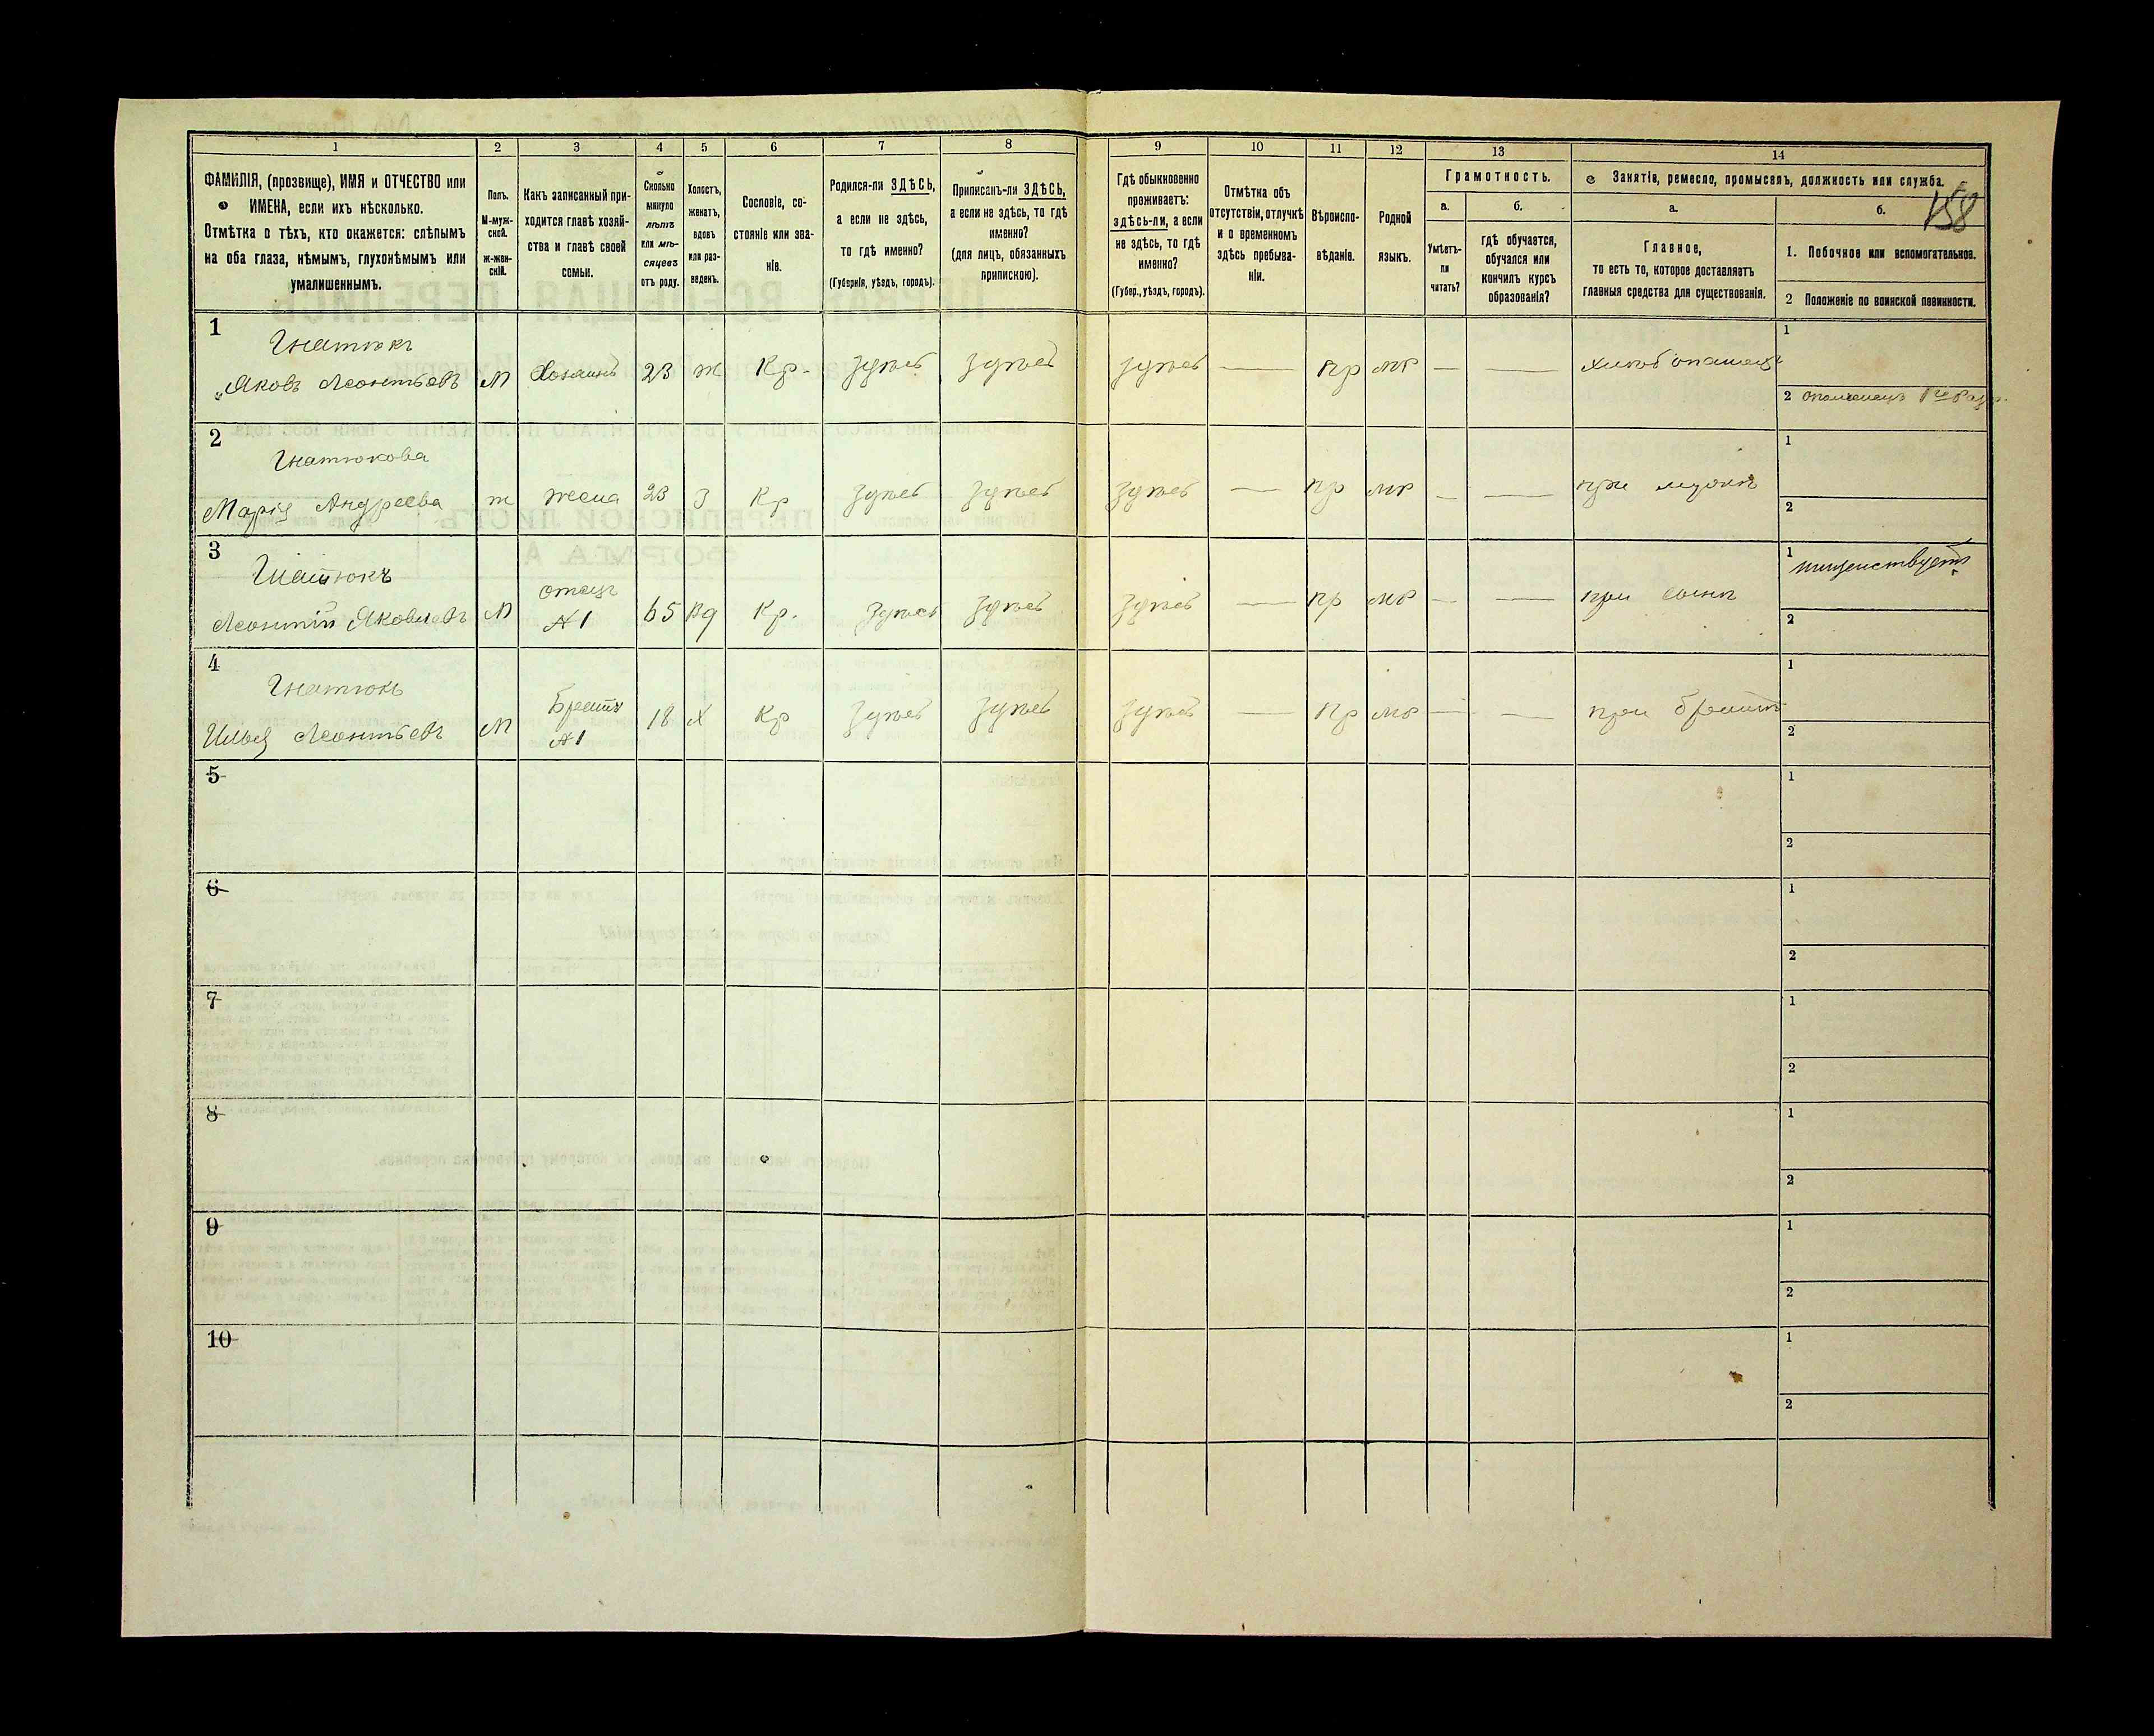 158
1
2
3
4
5
6
7
8
9
10
11
12
13
14
ФАМИЛІЯ, (прозвище), ИМЯ и ОТЧЕСТВО или
ИМЕНА, если ихъ нѣсколько.
Отмѣтка о тѣхъ, кто окажется: слѣпымъ
на оба глаза, нѣмымъ, глухонѣмымъ или
умалишеннымъ.
Полъ.
М-муж-
ской.
Ж-жен-
скій.
Какъ записанный при-
ходится главѣ хозяй-
ства и главѣ своей
семьи.
Сколько
минуло
лѣтъ
или мѣ-
сяцевъ
отъ роду.
Холостъ,
женатъ,
вдовъ
или раз-
веденъ.
Сословіе, со-
стояніе или зва-
ніе.
Родился-ли ЗДѢСЬ,
а если не здѣсь,
то гдѣ именно?
(Губернія, уѣздъ, городъ).
Приписанъ-ли ЗДѢСЬ,
а если не здѣсь, то гдѣ
именно?
(для лицъ, обязанныхъ
припискою).
Гдѣ обыкновенно
проживаетъ:
здѣсь-ли, а если
не здѣсь, то гдѣ
именно?
(Губер., уѣздъ, городъ).
Отмѣтка объ
отсутствіи, отлучкѣ
и о временномъ
здѣсь пребыва-
ніи.
Вѣроиспо-
вѣданіе.
Родной
языкъ.
Грамотность.
а.
Умѣетъ-
ли
читать?
б.
гдѣ обучается,
обучался или
кончилъ курсъ
образованія?
Занятіе, ремесло, промыселъ, должность или служба.
а.
Главное,
то есть то, которое доставляетъ
главныя средства для существованія.
б.
1. Побочное или вспомогательное.
2 Положеніе по воинской повинности.
1
Гнатюкъ
Яковъ Леонтьевъ М Хозяинъ 23 ж Кр. здѣсь здѣсь здѣсь — пр мр — — хлѣбопашецъ
1
2 ополченецъ
2
Гнатюкова
Марія Андреева ж жена 23 З Кр здѣсь здѣсь здѣсь — пр мр — — при мужѣ
1
2
3
Гнатюкъ
Леонтій Яковлевъ М отецъ №1 65 вд Кр. здѣсь здѣсь здѣсь — пр мр — — при сынѣ
1 нищенствуетъ
2
4
Гнатюкъ
Илья Леонтьевъ М Братъ №1 18 Х Кр здѣсь здѣсь здѣсь — пр мр — — при братѣ
1
2
5
1
2
6
1
2
7
1
2
8
1
2
9
1
2
10
1
2